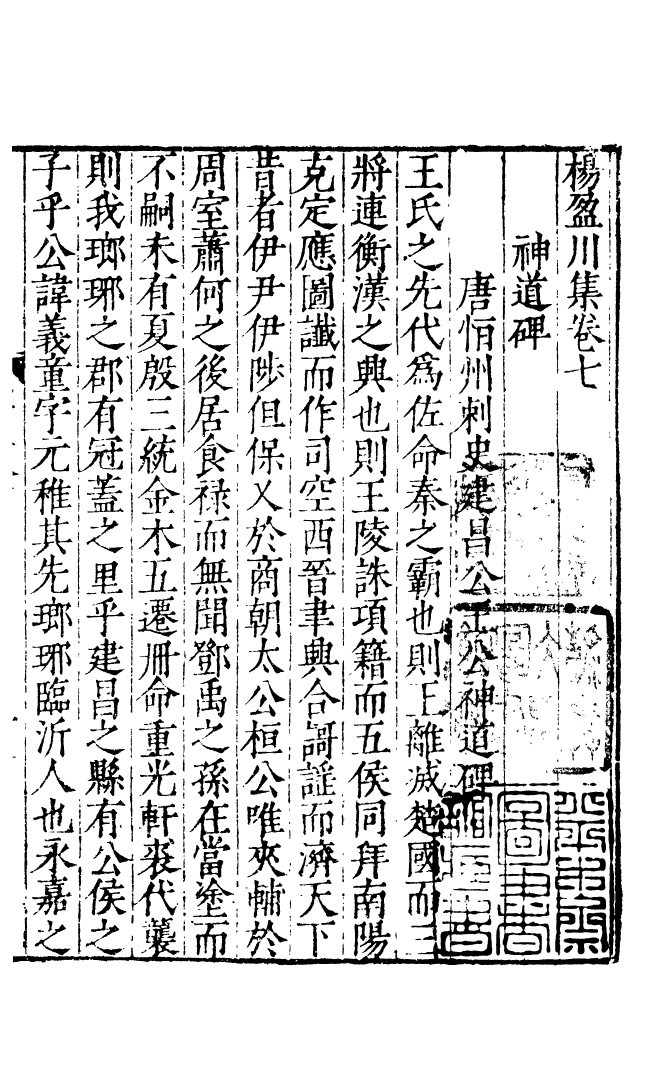 楊盈川集卷七
神道碑
唐恒州刺史建昌公王公神道碑
王氏之先代爲佐命秦之霸也則王離滅楚國而三
將連衡漢之興也則王陵誅項籍而五侯同拜南陽
克定應圖讖而作司空西晉聿興合謌謡而濟天下
昔者伊尹伊陟但保乂於商朝太公桓公唯夾輔於
周室蕭何之後居食禄而無聞鄧禹之孫在當塗而
不嗣未有夏殷三統金木五遷冊命重光軒裘代襲
則我瑯琊之郡有冠蓋之里乎建昌之縣有公侯之
子乎公諱義童字元稚其先瑯琊臨沂人也永嘉之